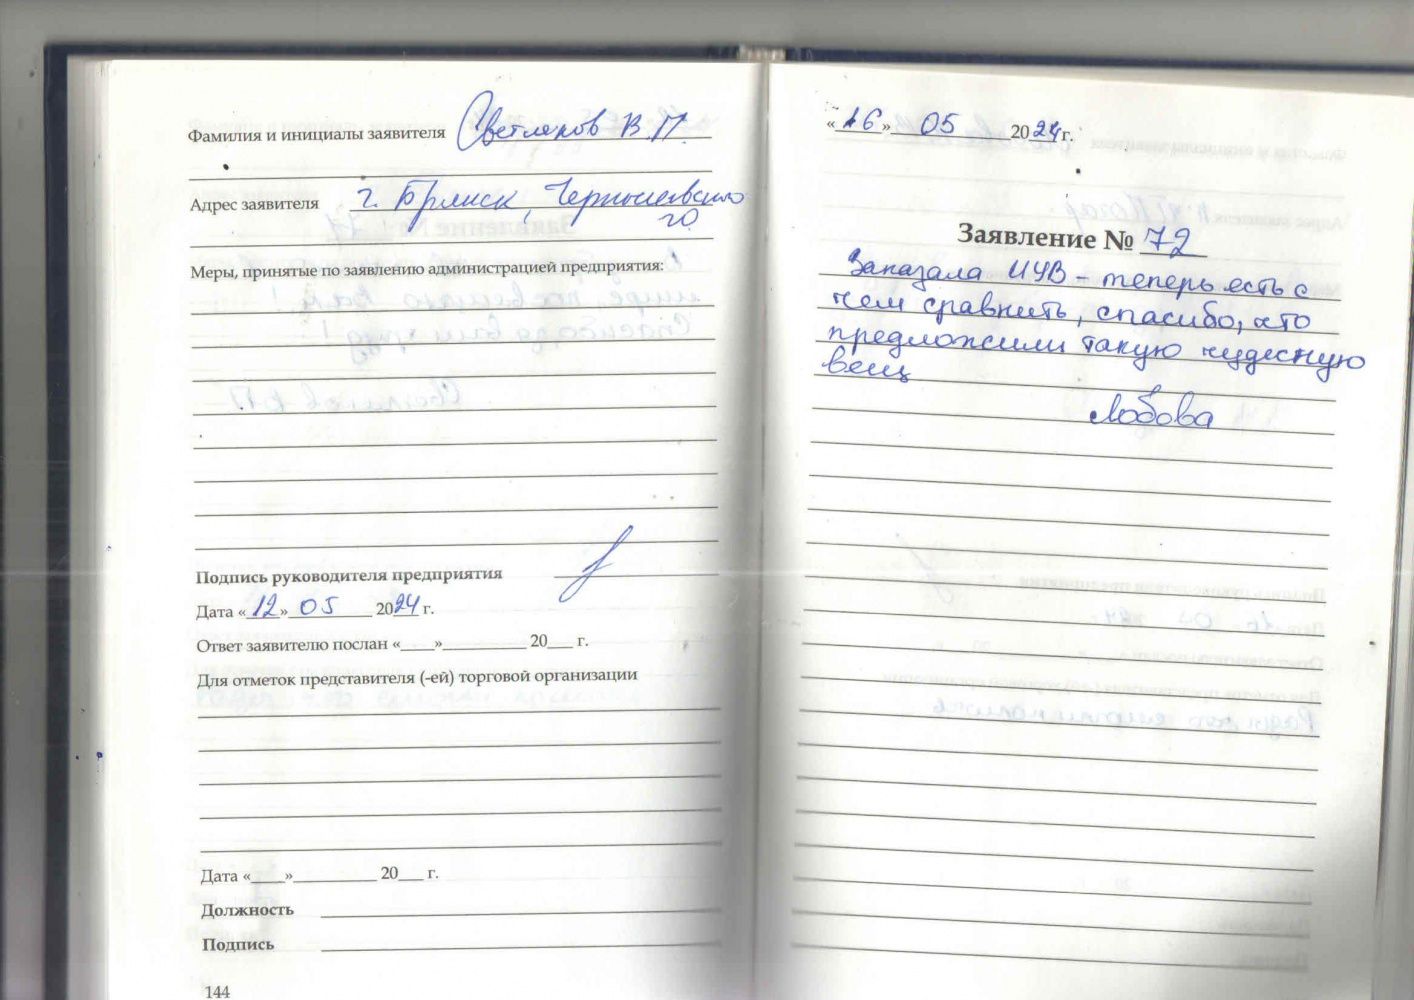 Фамилия и инициалы заявителя Светлаков В.П.
Адрес заявителя г. Брянск, Чернышевского
20.
Меры, принятые по заявлению администрацией предприятия:
Подпись руководителя предприятия
Дата «12» 05 2024 г.
Ответ заявителю послан «____»__________ 20___ г.
Для отметок представителя (-ей) торговой организации
Дата «____»__________ 20___ г.
Должность
Подпись
144
«16» 05 2024 г.
Заявление № 72
Заказала ИУВ – теперь есть с
чем сравнить, спасибо, что
предложили такую чудесную
вещ
Лобова